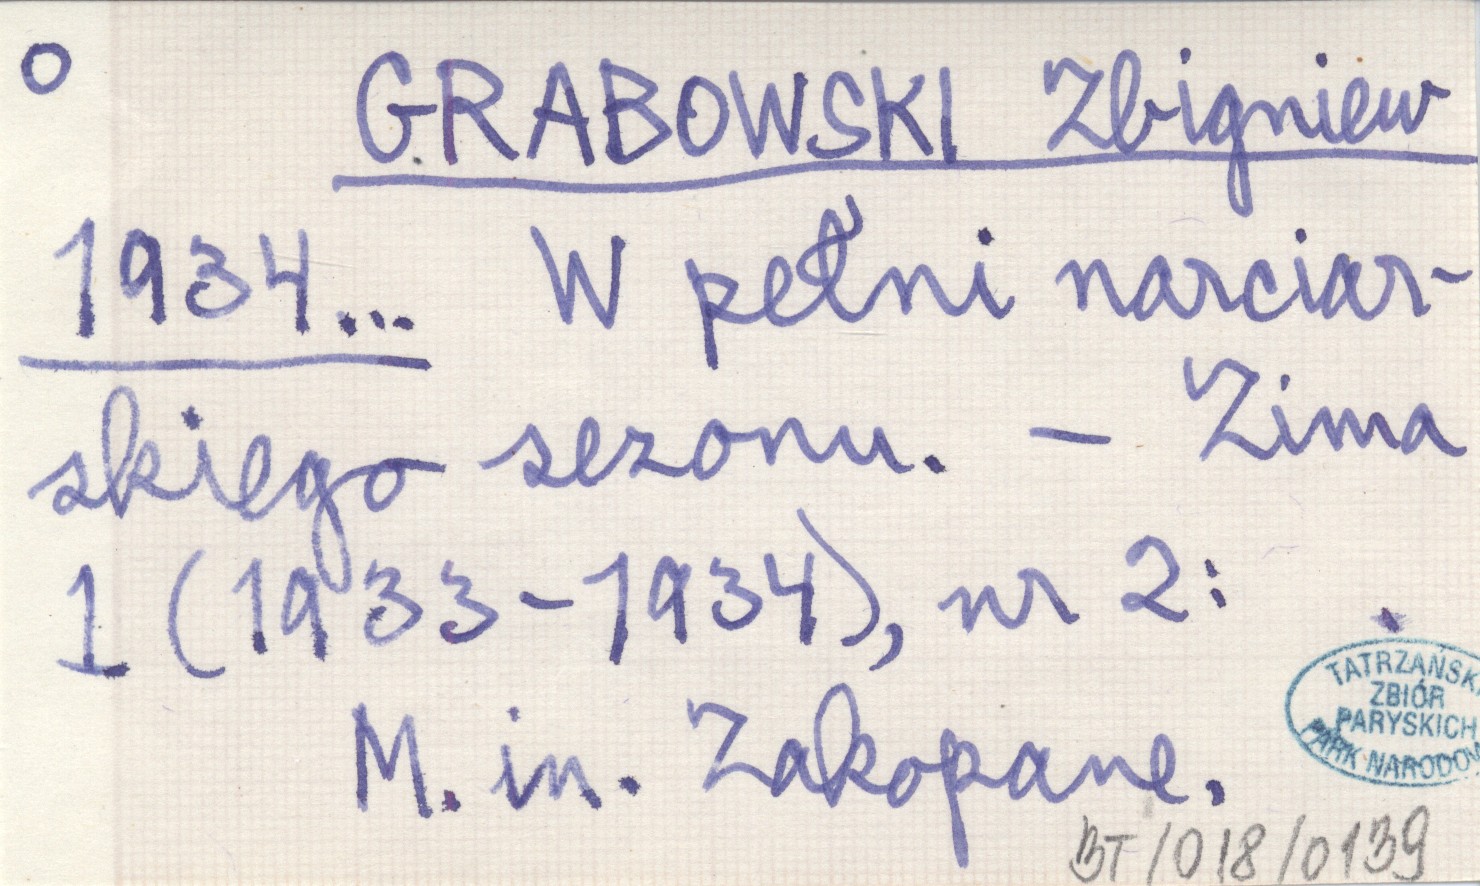 O
GRABOWSKI Zbigniew
1934... W pełni narciar-
skiego sezonu. – Zima
1 (1933-1934), nr 2: .
M. in. Zakopane.
TATRZAŃSKI
ZBIÓR
PARYSKICH
PARK NARODOW
BT/018/0139